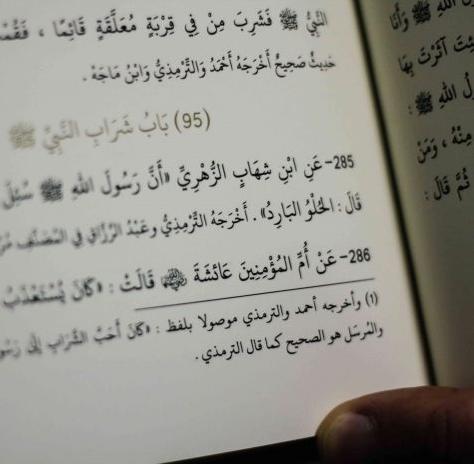 النَّبِيُّ ﷺ فَشَرِبَ مِنْ فِي قِرْبَةٍ مُعَلَّقَةٍ قَائِمًا ، فَقُمْـ
حَدِيثٌ صَحِيحٌ أَخْرَجَهُ أَحْمَدُ وَالتِّرْمِذِيُّ وَابْنُ مَاجَهْ .
(95) بَابُ شَرَابِ النَّبِيِّ ﷺ
285- عَنِ ابْنِ شِهَابٍ الزُّهْرِيِّ «أَنَّ رَسُولَ اللهِ ﷺ سُئِلَ
قَالَ : الْحُلْوُ الْبَارِدُ» . أَخْرَجَهُ التِّرْمِذِيُّ وعَبْدُ الرَّزَّاقِ فِي المُصَنَّفِ
286- عَنْ أُمِّ المُؤْمِنِينَ عَائِشَةَ قَالَتْ : «كَانَ يُسْتَعْذَبُ
(١) وأخرجه أحمد والترمذي موصولا بلفظ : «كَانَ أَحَبُّ الشَّرَابِ إِلَى رَسُو
والمُرسَل هو الصحيح كما قال الترمذي .
اللهِ ﷺ وَأَنَا
آثَرْتَ بِهَا
اللهِ ﷺ :
مِنْهُ ، وَمَنْ
ثُمَّ قَالَ :